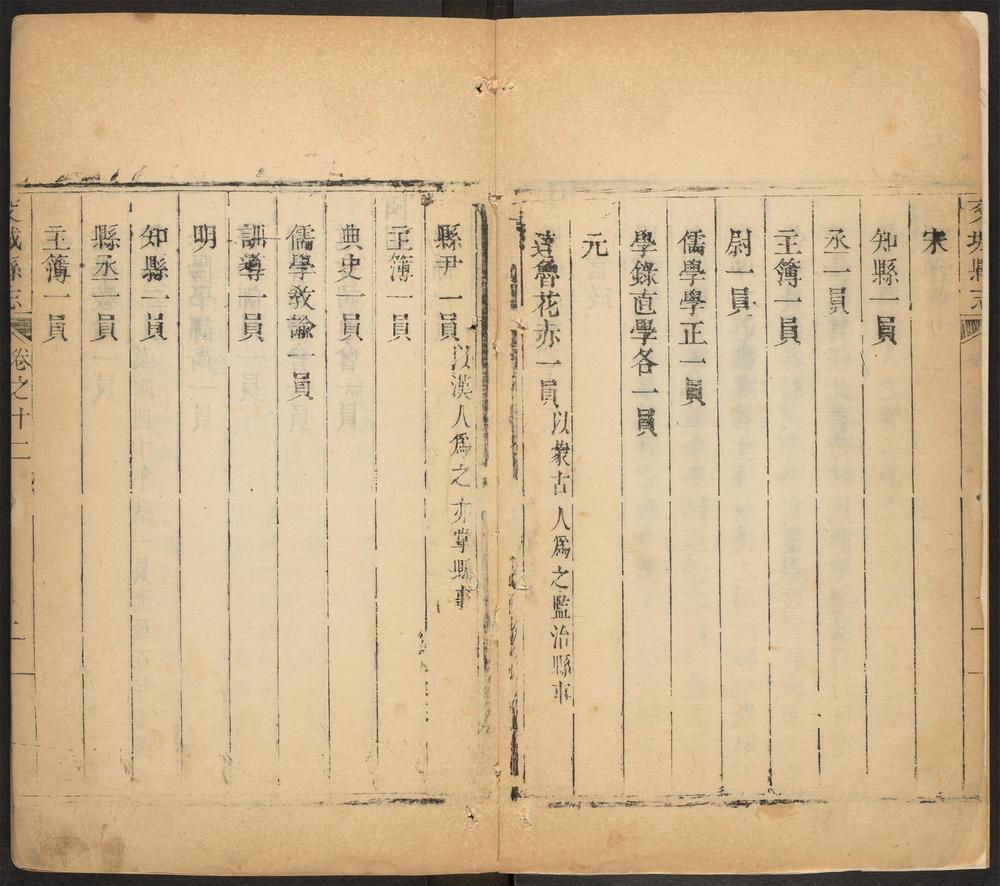 宋
知縣一員
丞一員
主簿一員
尉一員
儒學學正一員
學錄直學各一員
元
達魯花赤一員以蒙古人爲之監治縣事
縣尹一員以漢人爲之亦掌縣事
主簿一員
典史一員
儒學敎諭一員
訓導一員
明
知縣一員
縣丞一員
主簿一員
城縣志 卷之十一